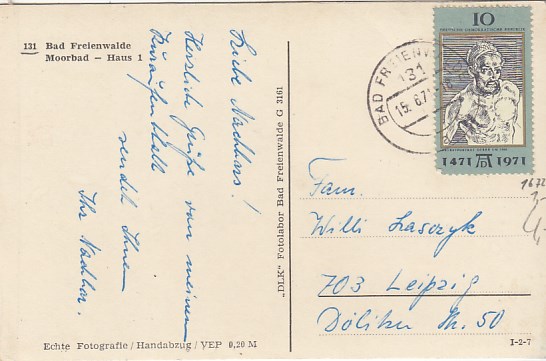 131 Bad Freienwalde
Moorbad – Haus 1
Liebe Nachbars!
Herzliche Grüße von meinem
Kuraufenthalt
sendet Ihnen
Ihr Nachbar.
"DLK" Fotolabor Bad Freienwalde G 3161
Echte Fotografie / Handabzug / VEP 0,20 M
10
DEUTSCHE DEMOKRATISCHE REPUBLIK
1471 1971
BAD FREIENW
131
15. 6.7
1672
Fam.
Willi Lasczyk
703 Leipzig
Dölitzer Str. 50
I-2-7